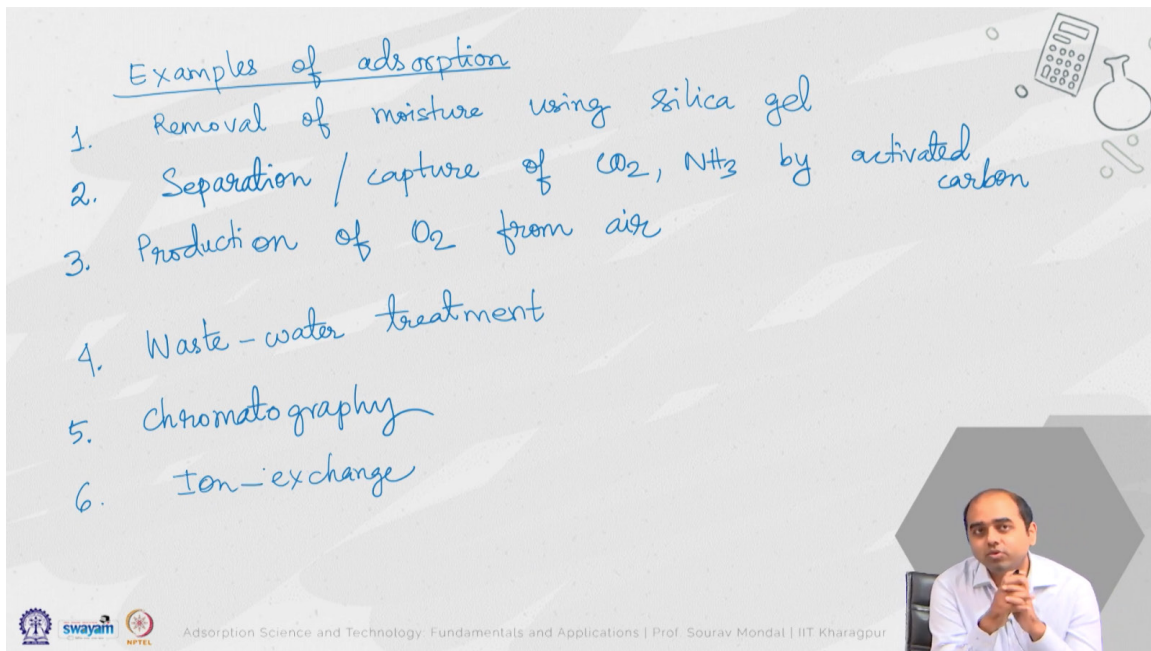 Examples of adsorption
1. Removal of moisture using silica gel
2. Separation / capture of CO2, NH3 by activated
carbon
3. Production of O2 from air
4. Waste-water treatment
5. Chromatography
6. Ion-exchange
swayam
NPTEL
Adsorption Science and Technology: Fundamentals and Applications | Prof. Sourav Mondal | IIT Kharagpur